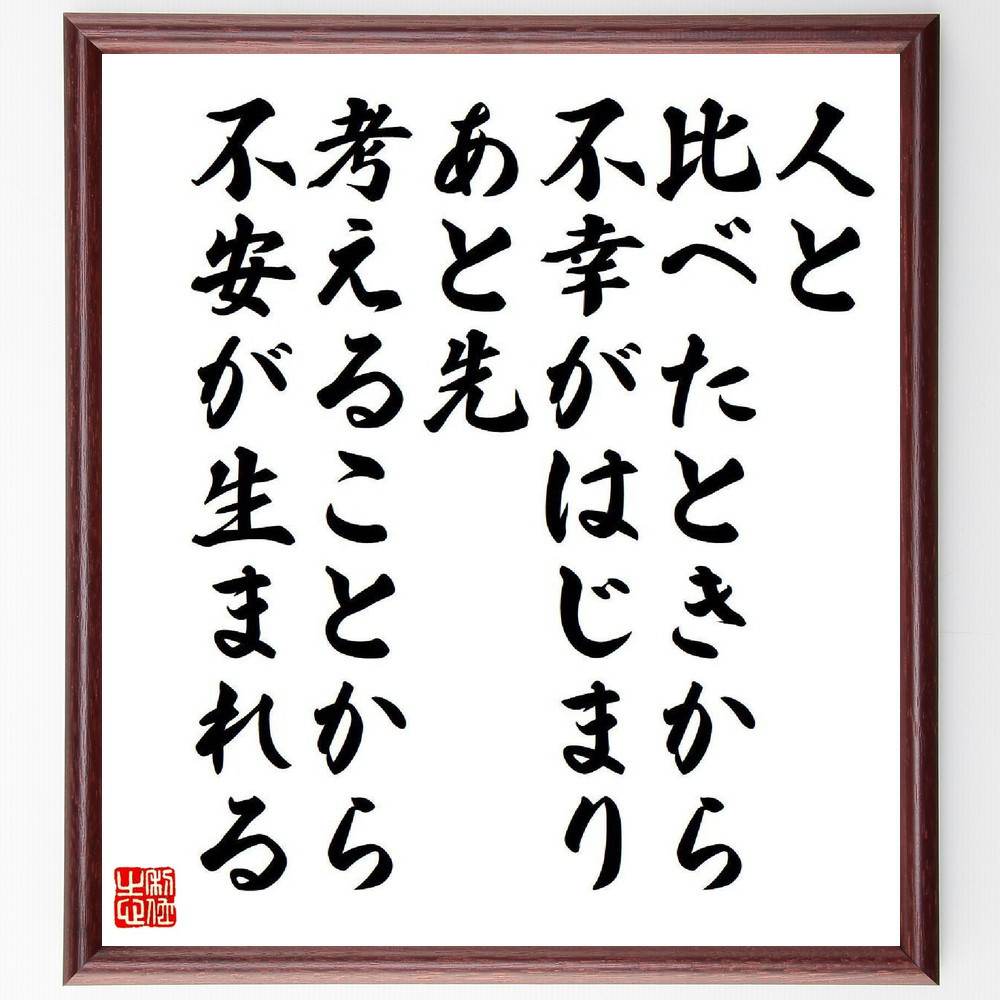 人と
比べたときから
不幸がはじまり
あと先
考えることから
不安が生まれる